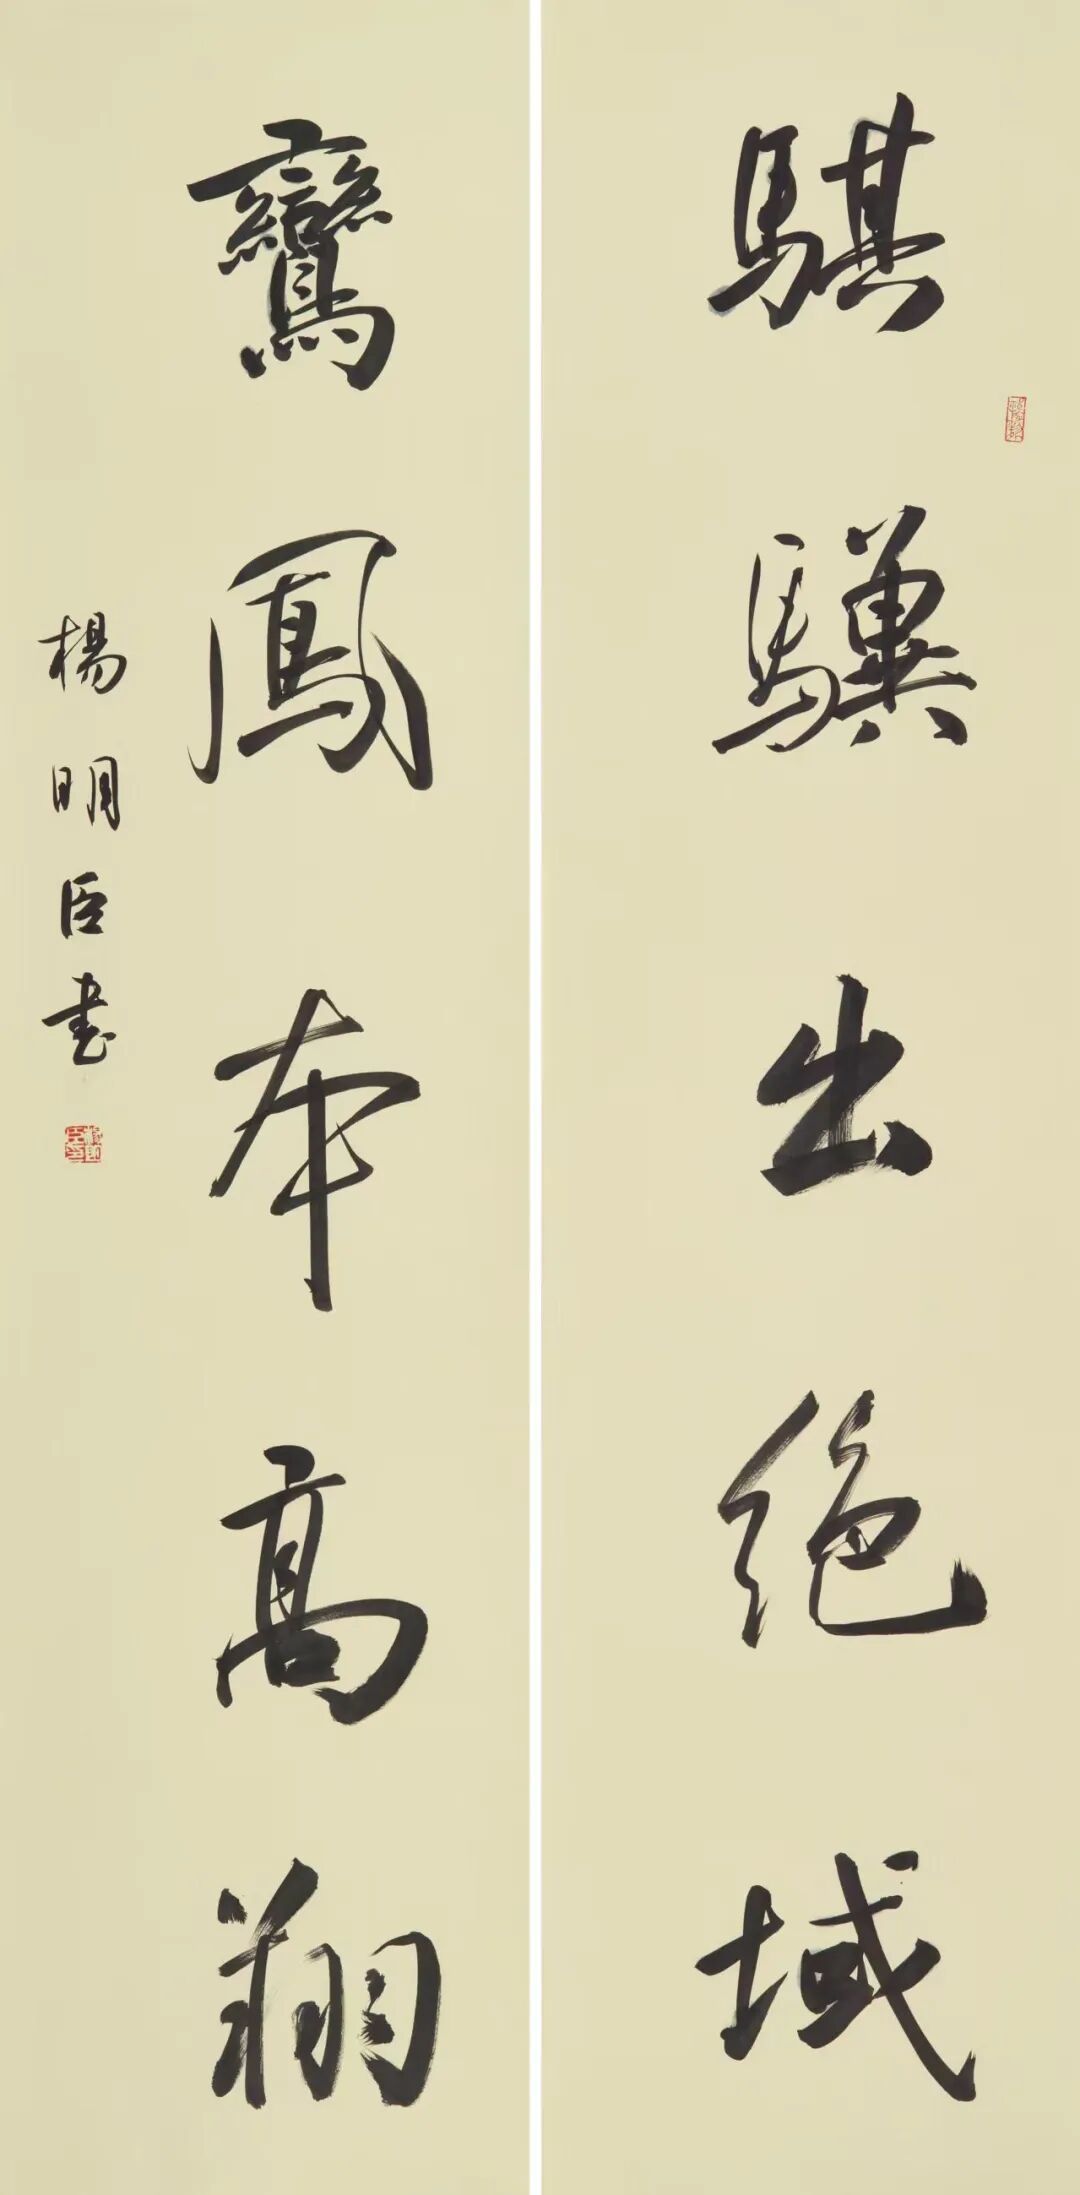 騏驥出絕域
鸞鳳本高翔
楊明臣書